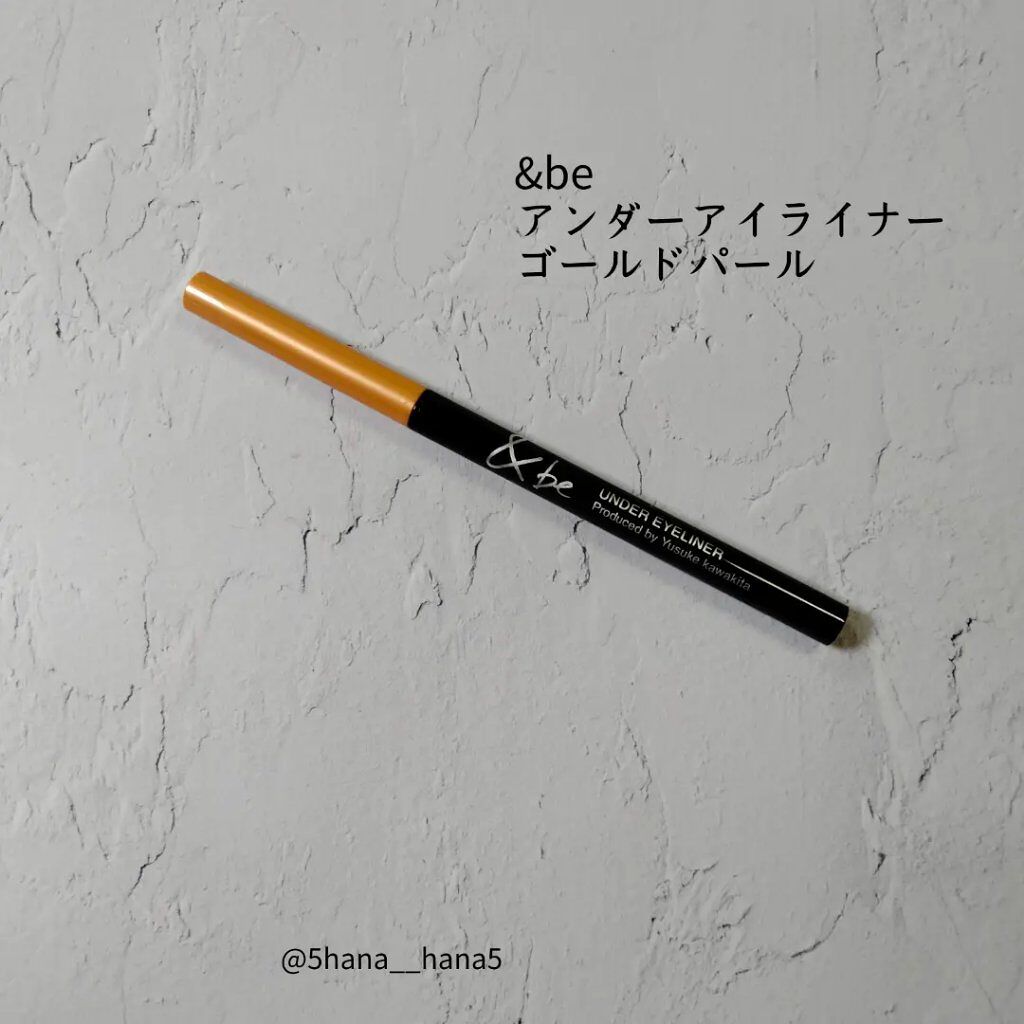 &be
アンダーアイライナー
ゴールドパール
&be
UNDER EYELINER
Produced by Yusuke kawakita
@5hana__hana5